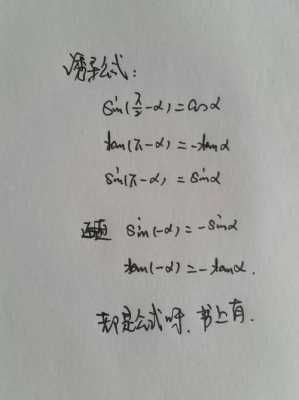 诱导公式:
sin(π/2-α)=cosα
tan(π-α)=-tanα
sin(π-α)=sinα
sin(-α)=-sinα
tan(-α)=-tanα.
都是公式呀,书上有.